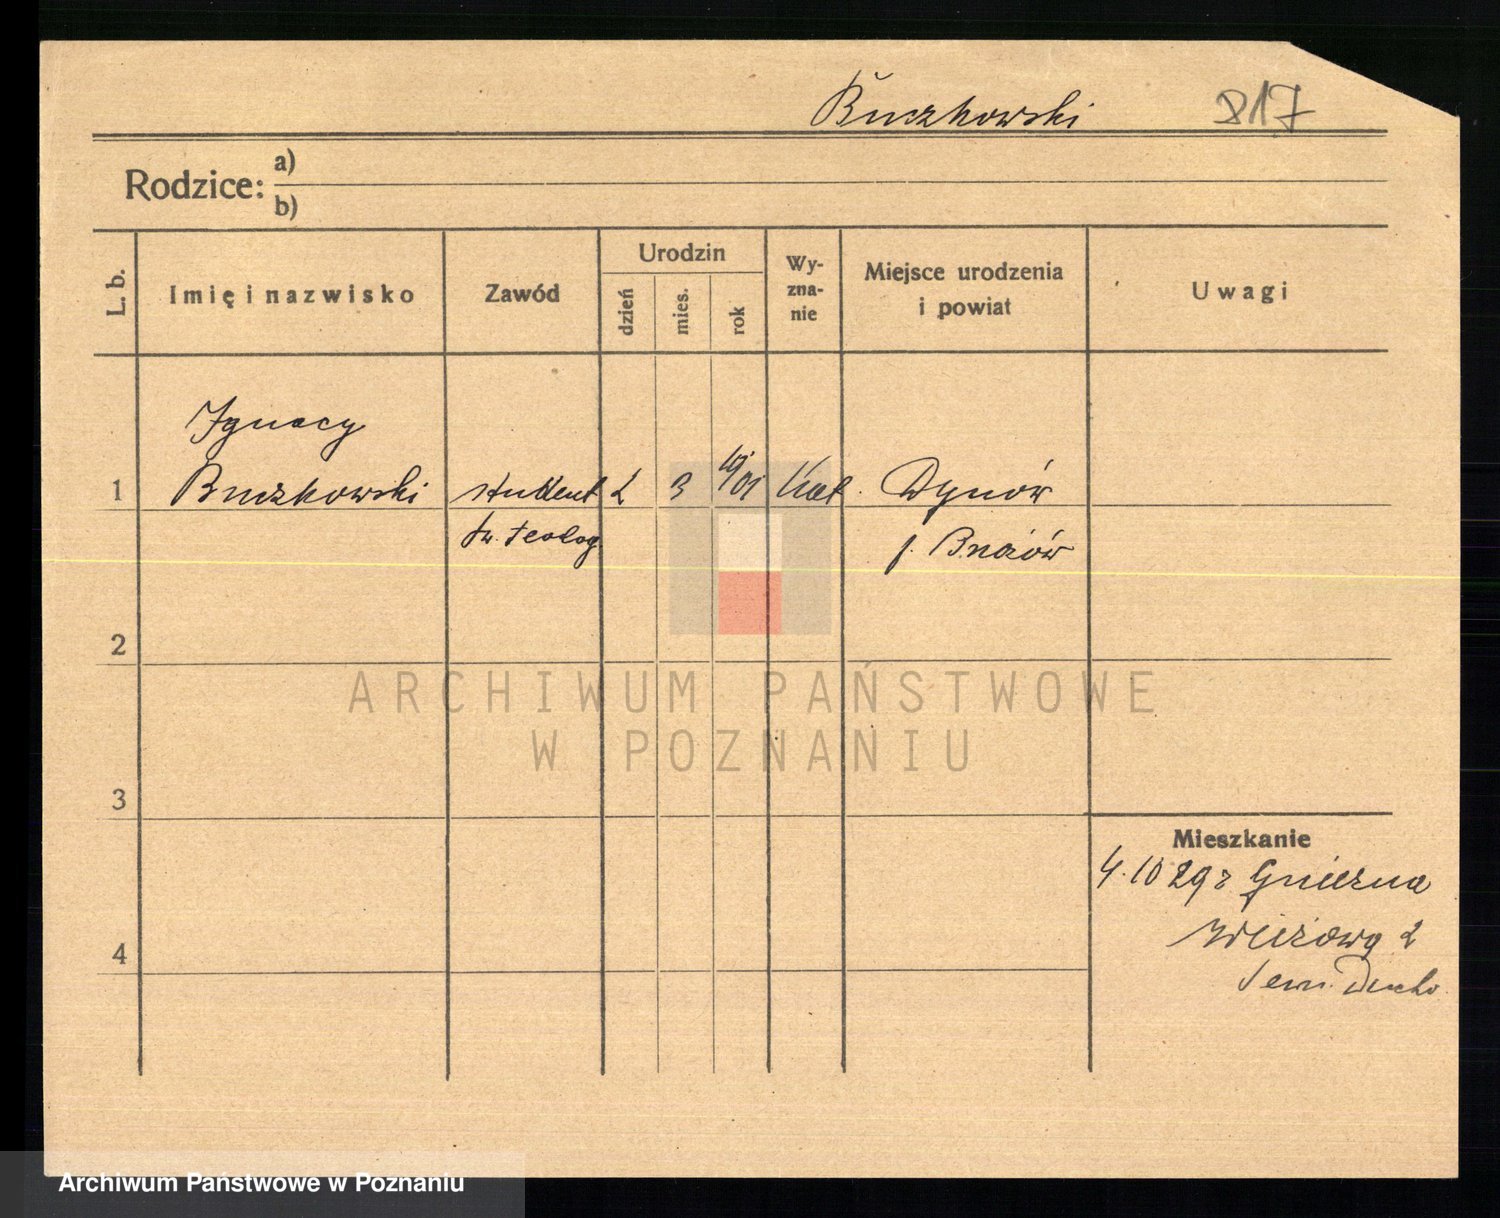 Buczkowski 817
Rodzice: a)
b)
L. b. Imię i nazwisko Zawód Urodzin dzień mies. rok Wy-zna-nie Miejsce urodzenia i powiat Uwagi
Ignacy
1 Buczkowski student 2 3 19/01 Kat. Dynów
św. teolog. p.
2
3
4
Mieszkanie
4.10 29 z Gniezna
Wieżowa 2
Sem. Ducho
ARCHIWUM PAŃSTWOWE
W POZNANIU
Archiwum Państwowe w Poznaniu